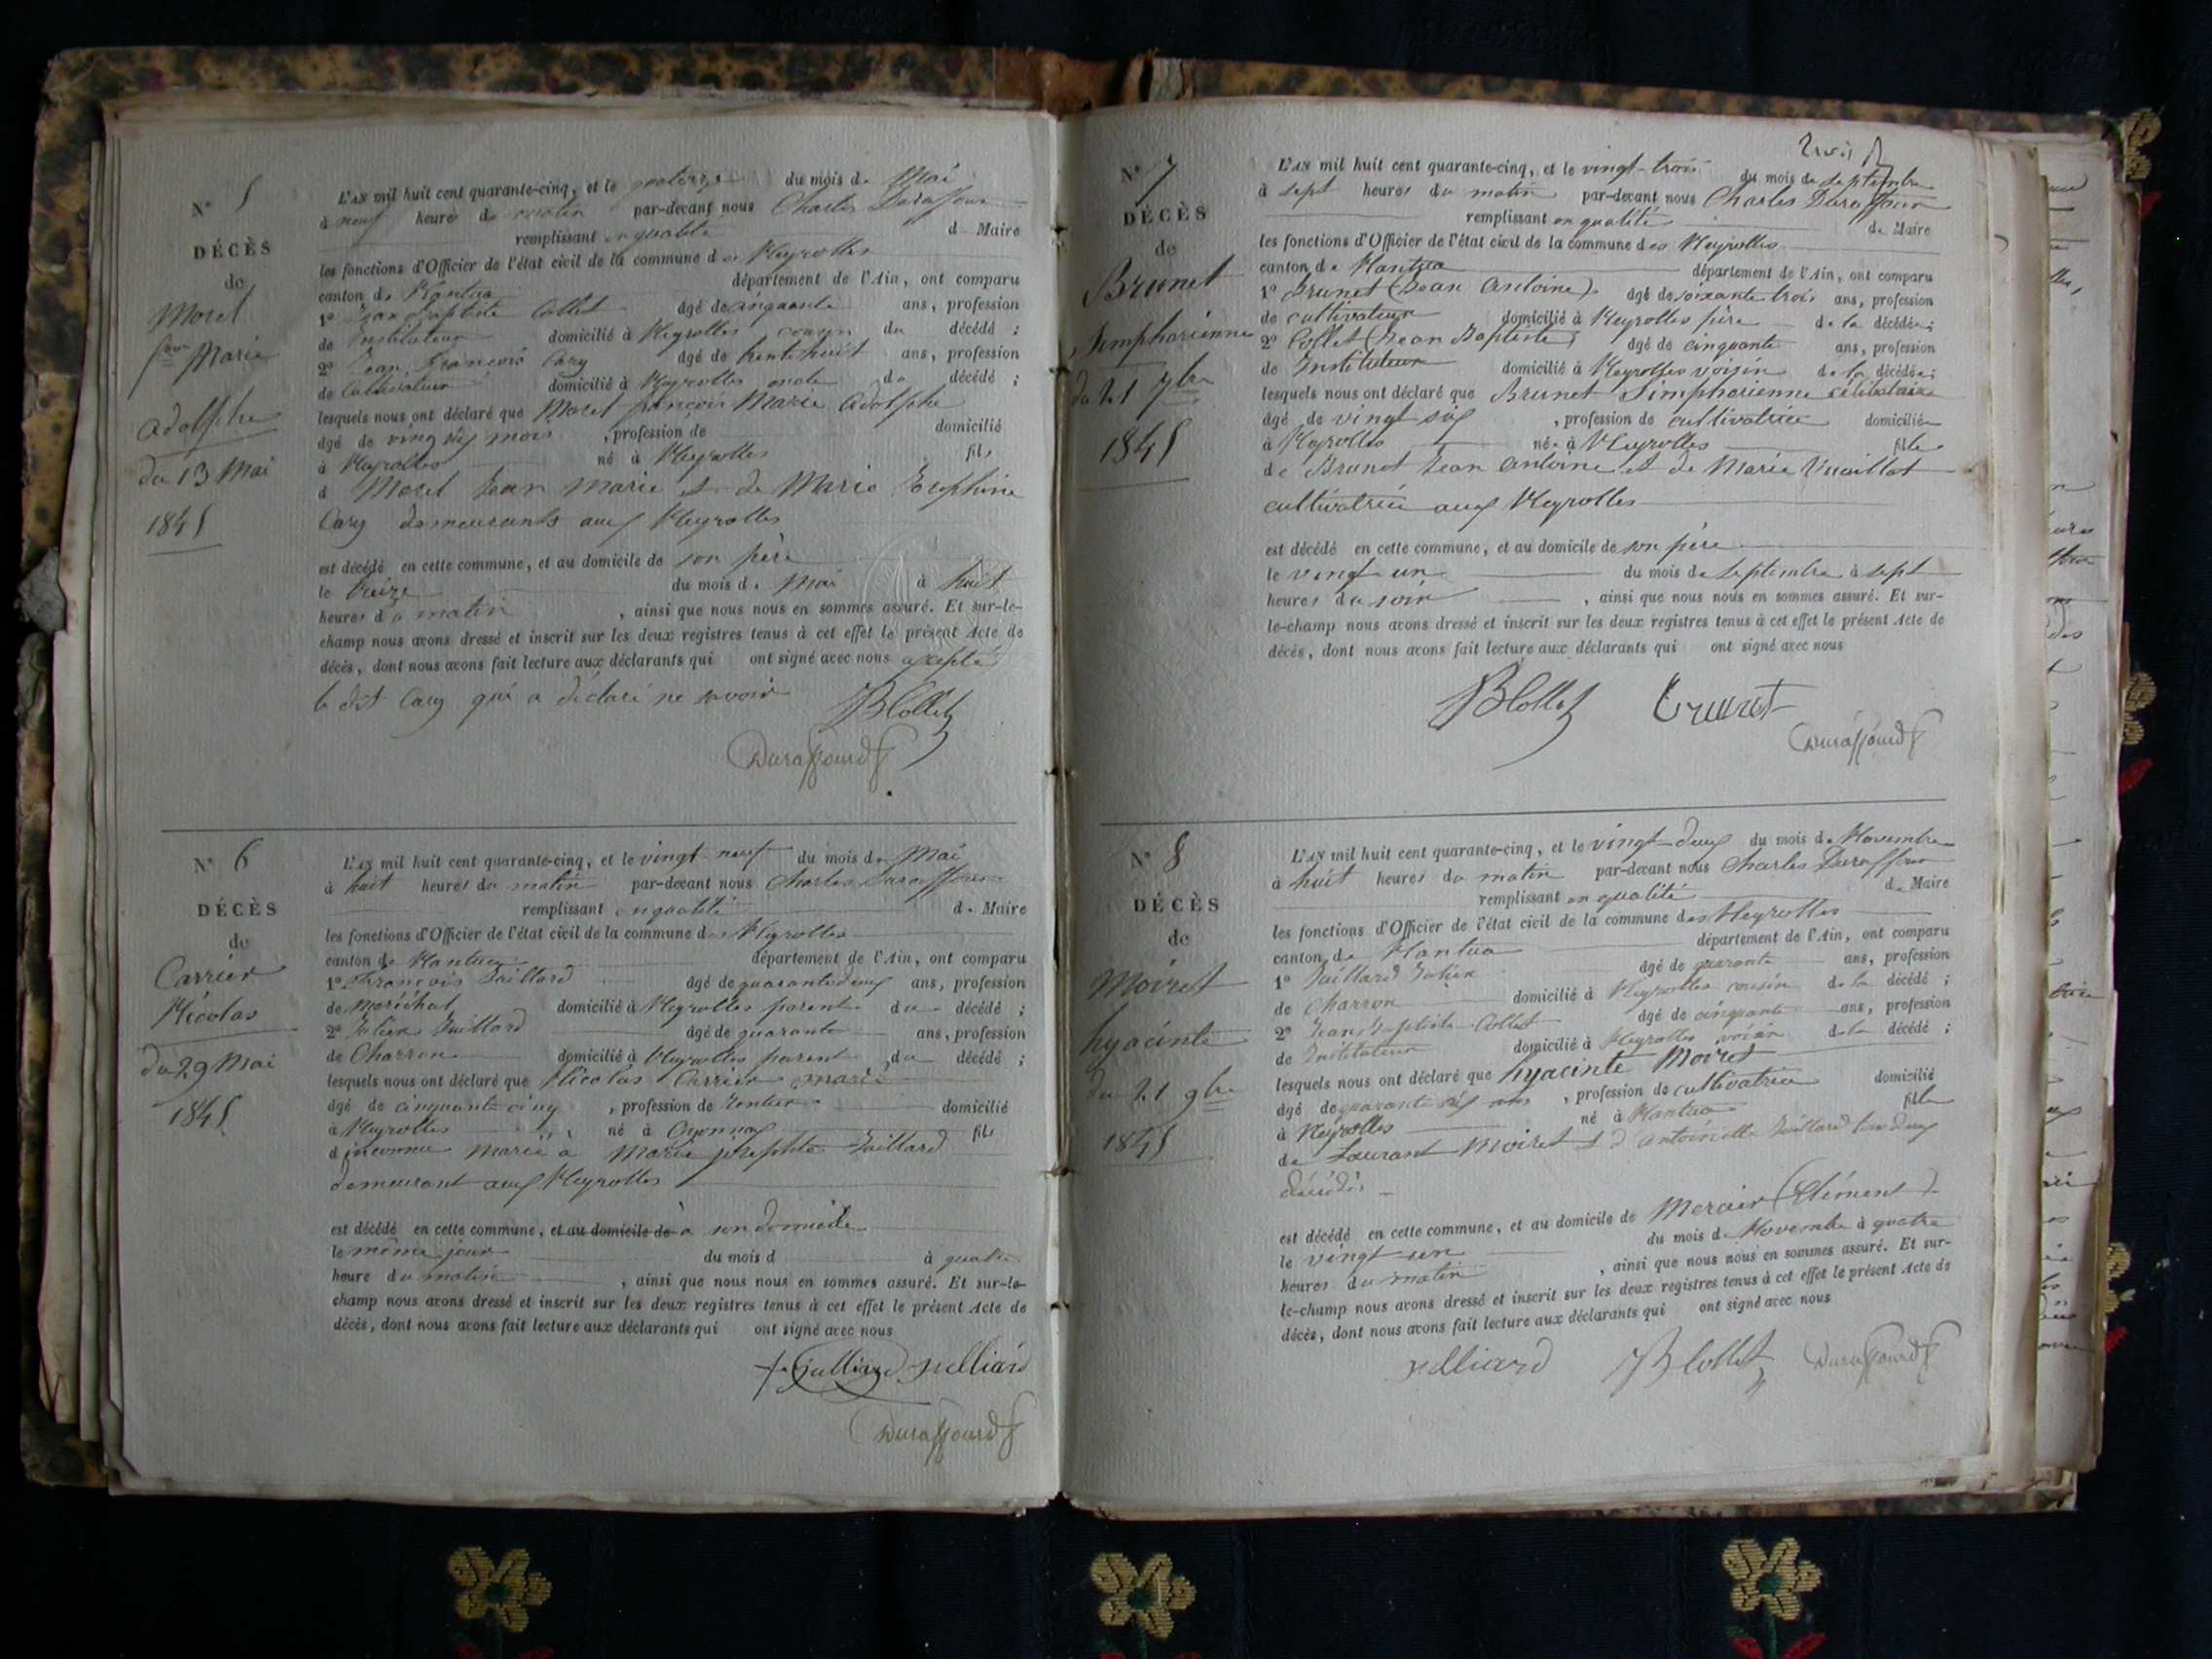 N° 5
DÉCÈS
de
Morel
fçois Marie
Adolphe
du 13 Mai
1845
L'AN mil huit cent quarante-cinq, et le quatorze du mois de Mai
à neuf heures du matin par-devant nous Charles Duraffour
remplissant en qualité de Maire
les fonctions d'Officier de l'état civil de la commune des Neyrolles
canton de Nantua département de l'Ain, ont comparu
1° Jean Baptiste Collet âgé de cinquante ans, profession
de Instituteur domicilié à Neyrolles cousin du décédé ;
2° Jean François Cary âgé de trente huit ans, profession
de Cultivateur domicilié à Neyrolles oncle du décédé ;
lesquels nous ont déclaré que Morel françois Marie Adolphe
âgé de vingt six mois , profession de domicilié
à Neyrolles né à Neyrolles fils
d Morel Jean Marie et de Marie Josephine
Cary demeurants aux Neyrolles
est décédé en cette commune, et au domicile de son père
le treize du mois de Mai à huit
heures du matin , ainsi que nous nous en sommes assuré. Et sur-le-
champ nous avons dressé et inscrit sur les deux registres tenus à cet effet le présent Acte de
décès, dont nous avons fait lecture aux déclarants qui ont signé avec nous excepté
le dit Cary qui a déclaré ne savoir
JBCollet
Duraffourd
N° 6
DÉCÈS
de
Carrier
Nicolas
du 29 Mai
1845
L'AN mil huit cent quarante-cinq, et le vingt-neuf du mois de Mai
à huit heures du matin par-devant nous Charles Duraffour
remplissant en qualité de Maire
les fonctions d'Officier de l'état civil de la commune des Neyrolles
canton de Nantua département de l'Ain, ont comparu
1° François Juillard âgé de quarante deux ans, profession
de Maréchal domicilié à Neyrolles parent du décédé ;
2° Julien Juillard âgé de quarante ans, profession
de Charron domicilié à Neyrolles parent du décédé ;
lesquels nous ont déclaré que Nicolas Carrier marié
âgé de cinquante cinq , profession de Rentier domicilié
à Neyrolles né à Oyonnax fils
d inconnu marié à Marie josephte Juillard
demeurant aux Neyrolles
est décédé en cette commune, et au domicile de à son domicile
le même jour du mois d à quatre
heure du matin , ainsi que nous nous en sommes assuré. Et sur-le-
champ nous avons dressé et inscrit sur les deux registres tenus à cet effet le présent Acte de
décès, dont nous avons fait lecture aux déclarants qui ont signé avec nous
fs julliard julliard
Duraffourd
N° 7
DÉCÈS
de
Brunet
Simphorienne
du 21 7bre
1845
L'AN mil huit cent quarante-cinq, et le vingt-trois du mois de septembre
à sept heures du matin par-devant nous Charles Duraffour
remplissant en qualité de Maire
les fonctions d'Officier de l'état civil de la commune des Neyrolles
canton de Nantua département de l'Ain, ont comparu
1° Brunet (Jean Antoine) âgé de soixante trois ans, profession
de cultivateur domicilié à Neyrolles père de la décédée ;
2° Collet (Jean Baptiste) âgé de cinquante ans, profession
de Instituteur domicilié à Neyrolles voisin de la décédée ;
lesquels nous ont déclaré que Brunet Simphorienne célibataire
âgé de vingt six , profession de cultivatrice domiciliée
à Neyrolles née à Neyrolles fille
de Brunet Jean Antoine et de Marie Vuaillat
cultivatrice aux Neyrolles
est décédé en cette commune, et au domicile de son père
le vingt un du mois de septembre à sept
heures du soir , ainsi que nous nous en sommes assuré. Et sur-
le-champ nous avons dressé et inscrit sur les deux registres tenus à cet effet le présent Acte de
décès, dont nous avons fait lecture aux déclarants qui ont signé avec nous
JBCollet Brunet
Duraffourd
N° 8
DÉCÈS
de
Moiret
hyacinte
du 21 9bre
1845
L'AN mil huit cent quarante-cinq, et le vingt-deux du mois de Novembre
à huit heures du matin par-devant nous Charles Duraffour
remplissant en qualité de Maire
les fonctions d'Officier de l'état civil de la commune des Neyrolles
canton de Nantua département de l'Ain, ont comparu
1° Juillard Julien âgé de quarante ans, profession
de Charron domicilié à Neyrolles cousin de la décédé ;
2° Jean Baptiste Collet âgé de cinquante ans, profession
de Instituteur domicilié à Neyrolles voisin de la décédé ;
lesquels nous ont déclaré que hyacinte Moiret
âgé de quarante six ans , profession de cultivatrice domicilié
à Neyrolles né à Nantua fille
de Laurant Moiret et d antoinette Juillard tou deux
décédés
est décédé en cette commune, et au domicile de Mercier (Clément)
le vingt un du mois de Novembre à quatre
heures du matin , ainsi que nous nous en sommes assuré. Et sur-
le-champ nous avons dressé et inscrit sur les deux registres tenus à cet effet le présent Acte de
décès, dont nous avons fait lecture aux déclarants qui ont signé avec nous
julliard JBCollet Duraffourd